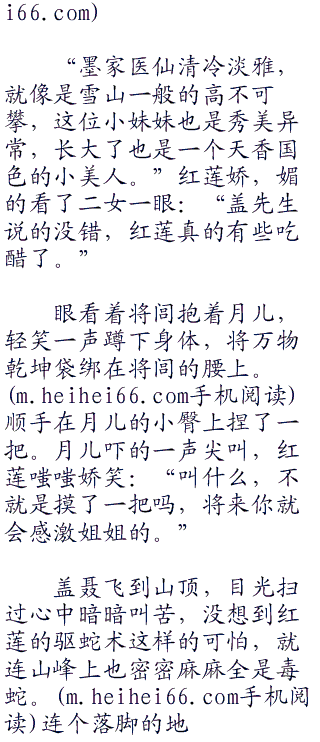 i66.com)
“墨家医仙清冷淡雅，
就像是雪山一般的高不可
攀，这位小妹妹也是秀美异
常，长大了也是一个天香国
色的小美人。”红莲娇，媚
的看了二女一眼：“盖先生
说的没错，红莲真的有些吃
醋了。”
眼看着将闾抱着月儿，
轻笑一声蹲下身体，将万物
乾坤袋绑在将闾的腰上。
(m.heihei66.com手机阅读)
顺手在月儿的小臀上捏了一
把。月儿吓的一声尖叫，红
莲嗤嗤娇笑：“叫什么，不
就是摸了一把吗，将来你就
会感激姐姐的。”
盖聂飞到山顶，目光扫
过心中暗暗叫苦，没想到红
莲的驱蛇术这样的可怕，就
连山峰上也密密麻麻全是毒
蛇。(m.heihei66.com手机阅
读)连个落脚的地